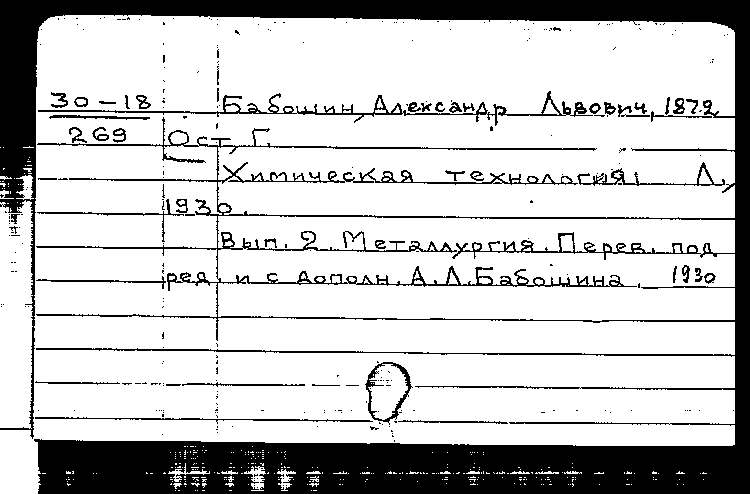 30-18 Бабошин, Александр Львович, 1872
269 Ост, Г.
Химическая технология; Л.,
1930.
Вып. 2. Металлургия. Перев. под
ред. и с дополн. А.Л.Бабошина. 1930